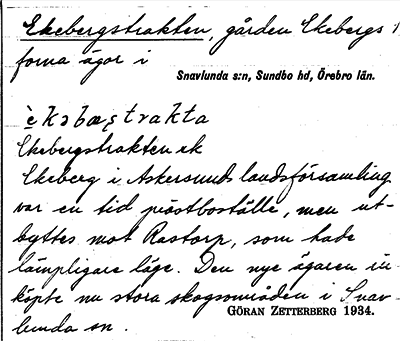 Ekebergstrakten, gården Ekebergs
forna ägor i
Snavlunda s:n, Sundbo hd, Örebro län.
è̀kəbæʂtrakta
Ekebergstrakten ek
Ekeberg i Askersunds landsförsamling
var en tid prostboställe, men ut-
byttes mot Rastorp, som hade
lämpligare läge. Den nye ägaren in-
köpte nu stora skogsområden i Snav-
lunda sn.
GÖRAN ZETTERBERG 1934.